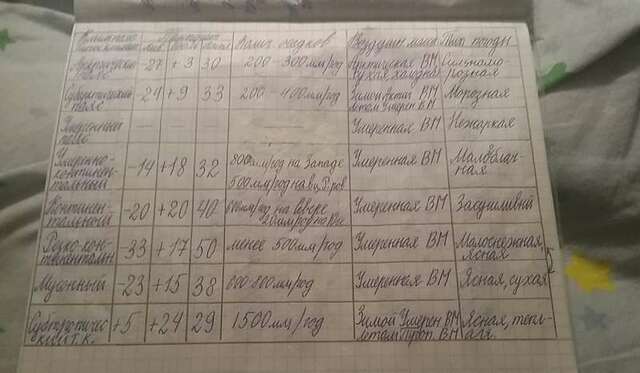 Климат
Температура
Колич. осадков
Воздушн. масса
Тип погоды
Арктический пояс
-27 +3 30
200-300мм/год
Арктическая ВМ
сухая холодна
Сильномо-
розная
Субарктический
пояс
-24 +9 33
200-400мм/год
Зимой Арктич ВМ
летом Умерен ВМ
Морозная
Умеренный
пояс
— — —
—
Умеренная ВМ
Нежаркая
Умеренно-
континен-
тальный
-14 +18 32
800мм/год на Западе
500мм/год на
Умеренная ВМ
Малоблач-
ная
Континен-
тальный
-20 +20 40
600мм/год на Севере
Умеренная ВМ
Засушливый
Резко-кон-
тинентальн
-33 +17 50
менее 500мм/год
Умеренная ВМ
Малоснежная,
ясная
Мусонный
-23 +15 38
600-800мм/год
Умеренная ВМ
Ясная, сухая
Субтропичес-
кий т.к.
+5 +24 29
1500мм/год
Зимой Умерен ВМ
летом Троп. ВМ
Ясная, теп-
лая.